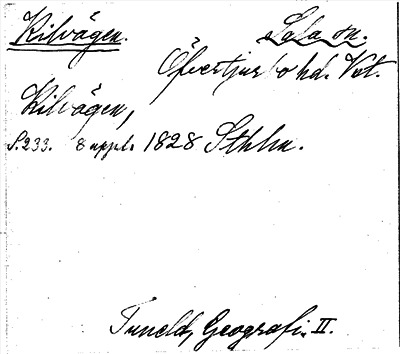 Kilvägen.
Sala sn.
Öfvertjurbo hd. Vst.
Kilvägen,
S.233. 8 uppl. 1828 Sthlm.
Tuneld, Geografi. II.